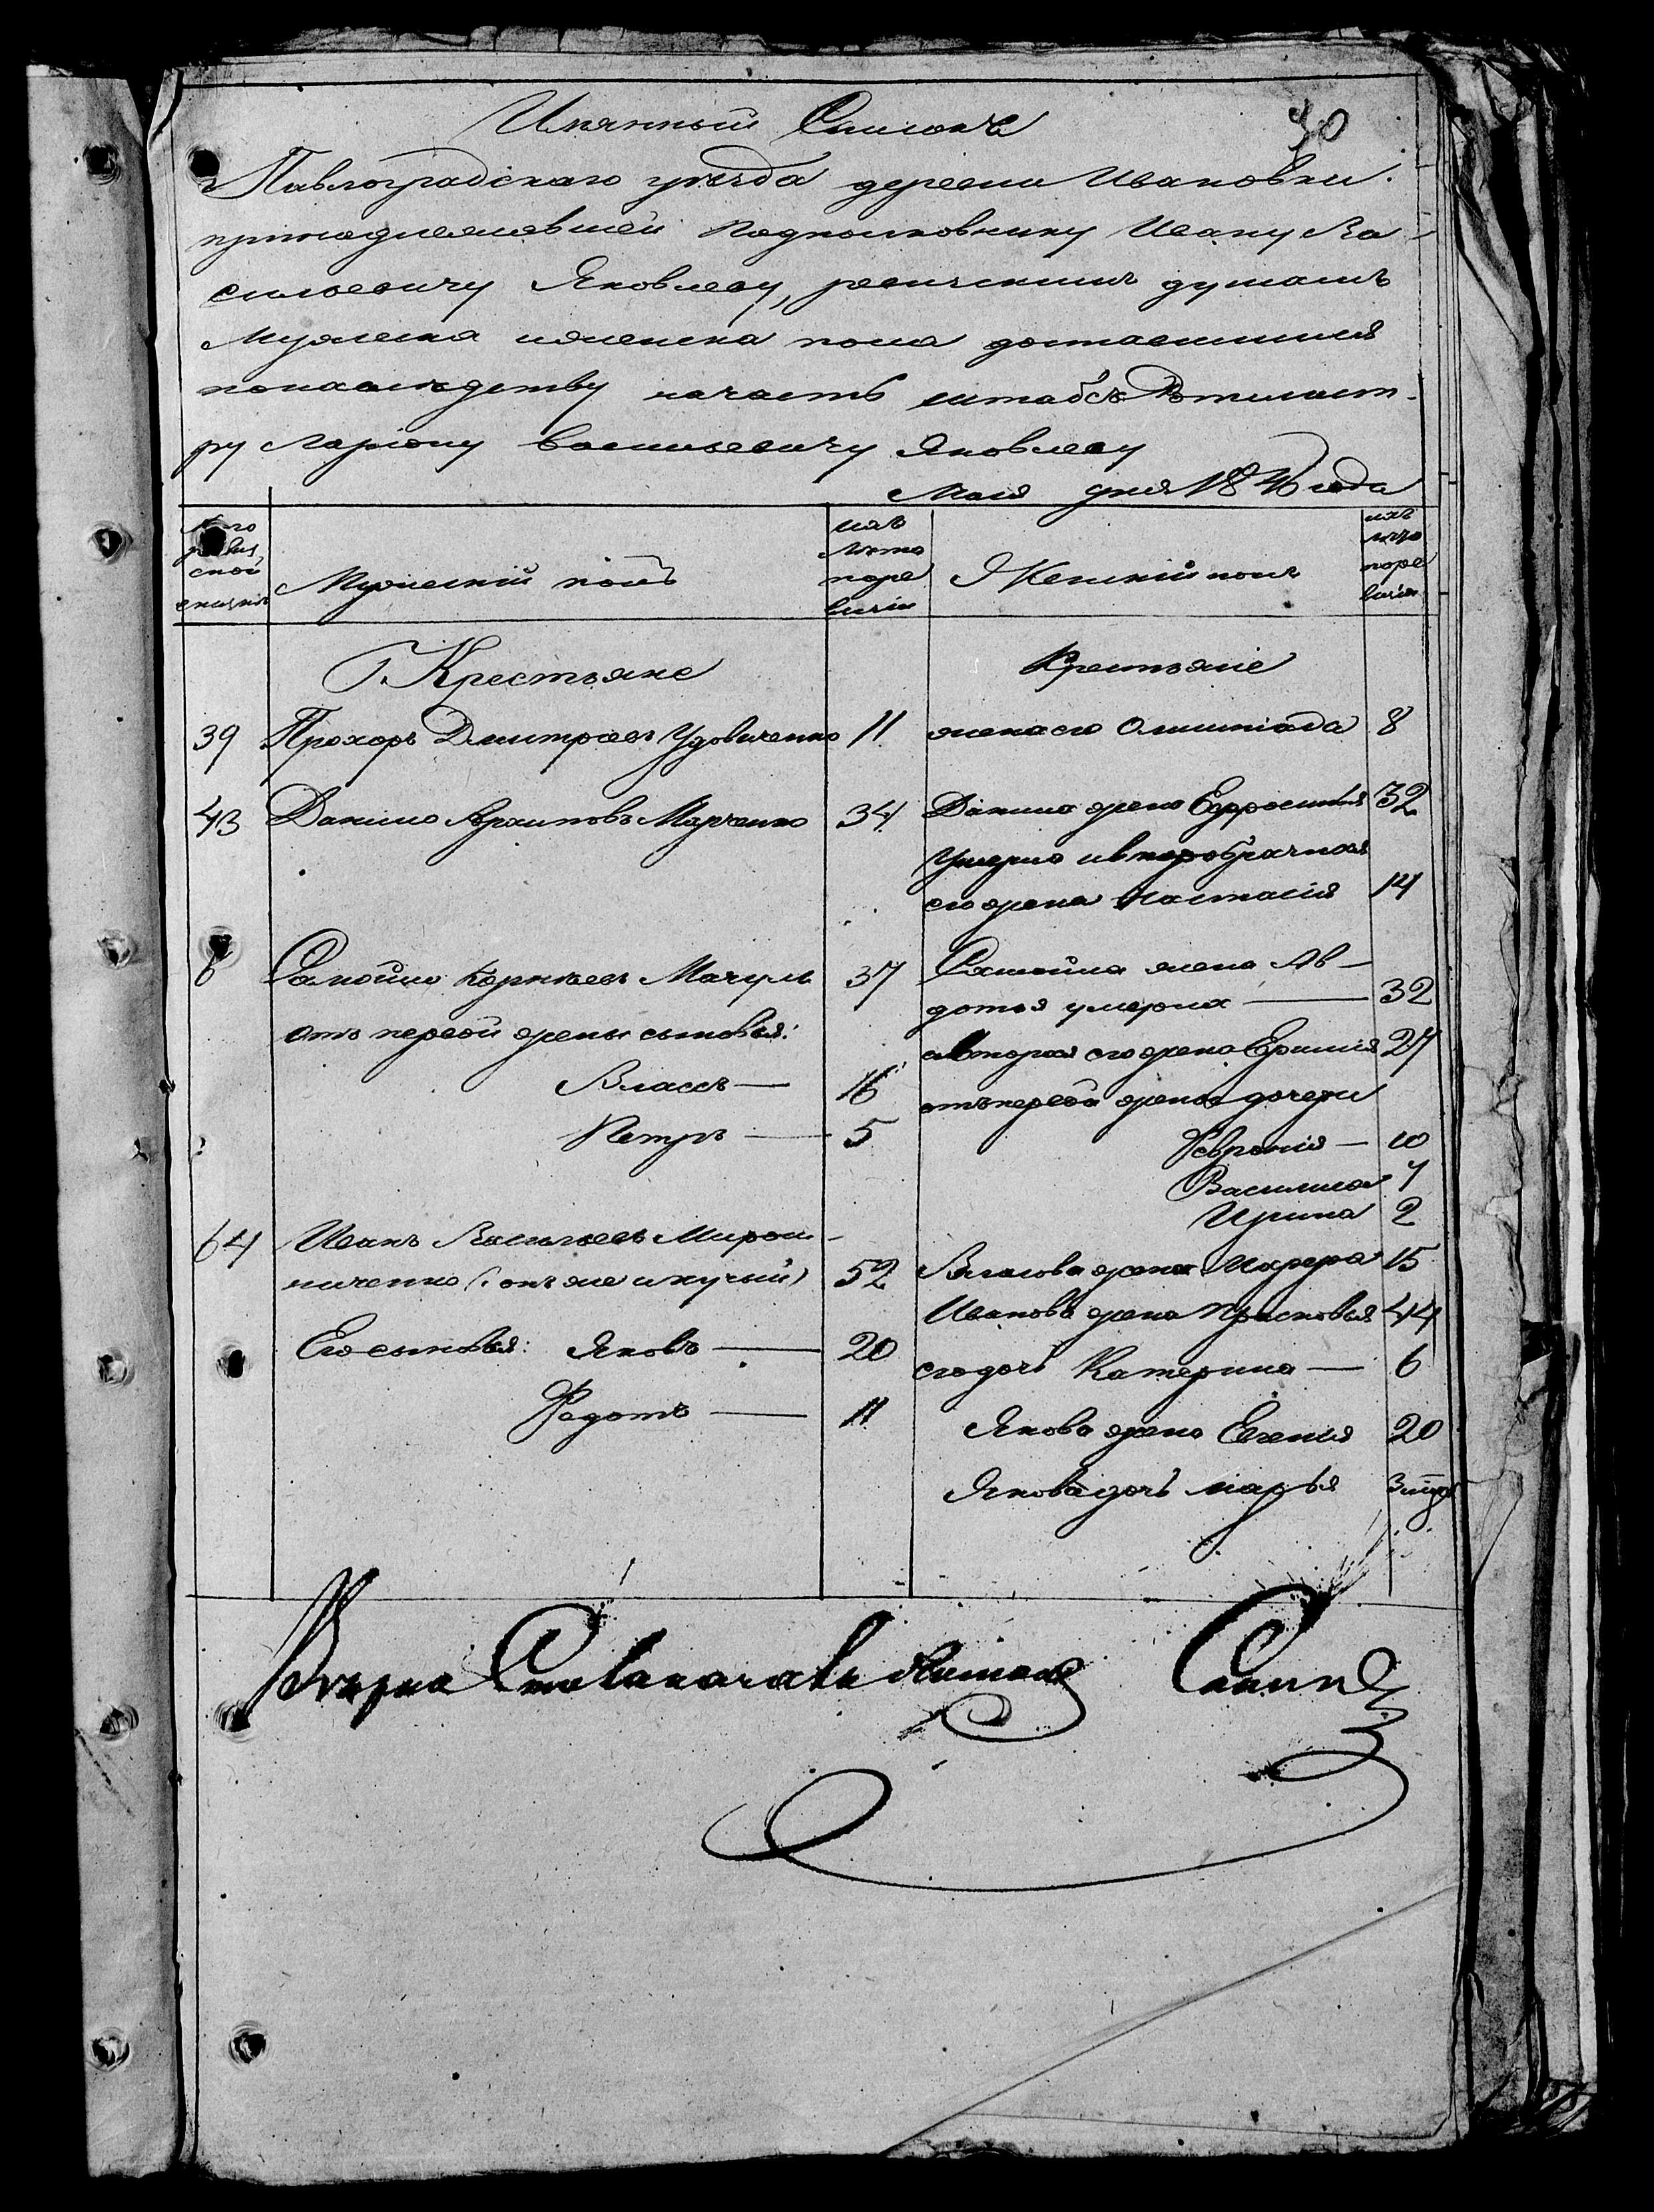 Имянный Списокъ
70
Павлоградскаго уѣзда деревни Ивановки.
принадлежавшей Подполковнику Ивану Ва-
сильевичу Яковлеву, ревижскимъ душамъ
Мужеска иженска пола доставшимся
понаследству начасть штабсъ Ротмист-
ру Ларіону Васильевичу Яковлеву
Маія дня 1846 года
№ по ревиз ской сказкѣ
Мужескій полъ
ихъ лѣта поре визіи
Женскій полъ
ихъ лѣта поре визіи
Крестьяне
Крестьяне
39 Прохоръ Дмитріевъ Удовиченко 11 жена его Олимпіада 8
43 Данило Архиповъ Марченко 34 Данила жена Ефросинія 32
Умерла ивторобрачная
его жена Настасія 14
6 Самойло Корнѣевъ Мачула 37 Самойла жена Ав-
дотья умерла 32
отъ первой жены сыновья:
ивторая его жена 27
Власъ 16
отъ первой жены дочери
Петръ 5
Февронія 10
Василиса 7
Ирина 2
64 Иванъ Васильевъ Мирош-
ниченко (: онъ же и кучий) 52 Власова жена Марфа 15
Иванова жена Прасковья 44
Его сыновья: Яковъ 20
его дочь Катерина 6
Федотъ 11
Якова жена Евгенія 20
Якова дочь марья 3